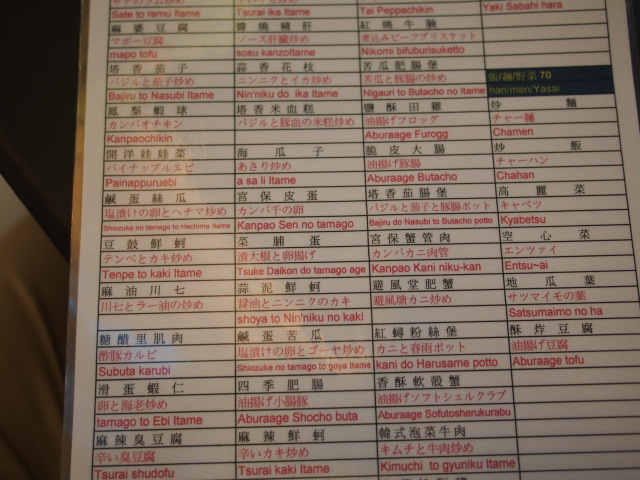 Sate to ramu Itame
麻婆豆腐
マボー豆腐
mapo tofu
塔香茄子
バジルと茄子炒め
Bajiru to Nasubi Itame
鳳梨蝦球
カンパオチキン
Kanpaochikin
開洋娃娃菜
パイナップルエビ
Painappuruebi
鹹蛋絲瓜
塩漬けの卵とヘチマ炒め
Shiozuke no tamago to Hechima Itame
豆鼓鮮蚵
テンペとカキ炒め
Tenpe to kaki Itame
麻油川七
川七とラー油の炒め
糖醋里肌肉
酢豚カルビ
Subuta karubi
滑蛋蝦仁
卵と海老炒め
tamago to Ebi Itame
麻辣臭豆腐
辛い臭豆腐
Tsurai shudofu
Tsurai ika Itame
醬燒豬肝
ソース肝臓炒め
sosu kanzoItame
蒜香花枝
ニンニクとイカ炒め
Nin'niku do ika Itame
塔香米血糕
バジルと豚血の米糕炒め
海瓜子
あさり炒め
a sa li Itame
宮保皮蛋
カンパ千の卵
Kanpao Sen no tamago
菜脯蛋
漬大根と卵揚げ
Tsuke Daikon do tamago age
蒜泥鮮蚵
醤油とニンニクのカキ
shoya to Nin'niku no kaki
鹹蛋苦瓜
塩漬けの卵とゴーヤ炒め
Shiozuke no tamago to goya Itame
四季肥腸
油揚げ小腸豚
Aburaage Shocho buta
麻辣鮮蚵
辛いカキ炒め
Tsurai kaki Itame
Tai Peppachikin
紅燒牛腩
煮込みビーフブリスケット
Nikomi bifuburisuketto
苦瓜肥腸煲
苦瓜と豚腸の炒め
Nigauri to Butacho no Itame
鹽酥田雞
油揚げフロッグ
Aburaage Furogg
脆皮大腸
油揚げ豚腸
Aburaage Butacho
塔香茄腸煲
バジルと茄子と豚腸ポット
Bajiru do Nasubi to Butacho potto
宮保蟹管肉
カンパカニ肉管
Kanpao Kani niku-kan
避風堂肥蟹
避風塘カニ炒め
紅蟳粉絲煲
カニと春雨ポット
Kani do Harusame potto
香酥軟殼蟹
油揚げソフトシェルクラブ
Aburaage Sofutosherukurabu
韓式泡菜牛肉
キムチと牛肉炒め
Kimuchi to gyuniku Itame
Yaki Sabahi hara
飯/麵/野菜 70
han/men/Yasai
炒麵
チャー麺
Chamen
炒飯
チャーハン
Chahan
高麗菜
キャベツ
Kyabetsu
空心菜
エンツァイ
Entsu~ai
地瓜葉
サツマイモの葉
Satsumaimo no ha
酥炸豆腐
油揚げ豆腐
Aburaage tofu